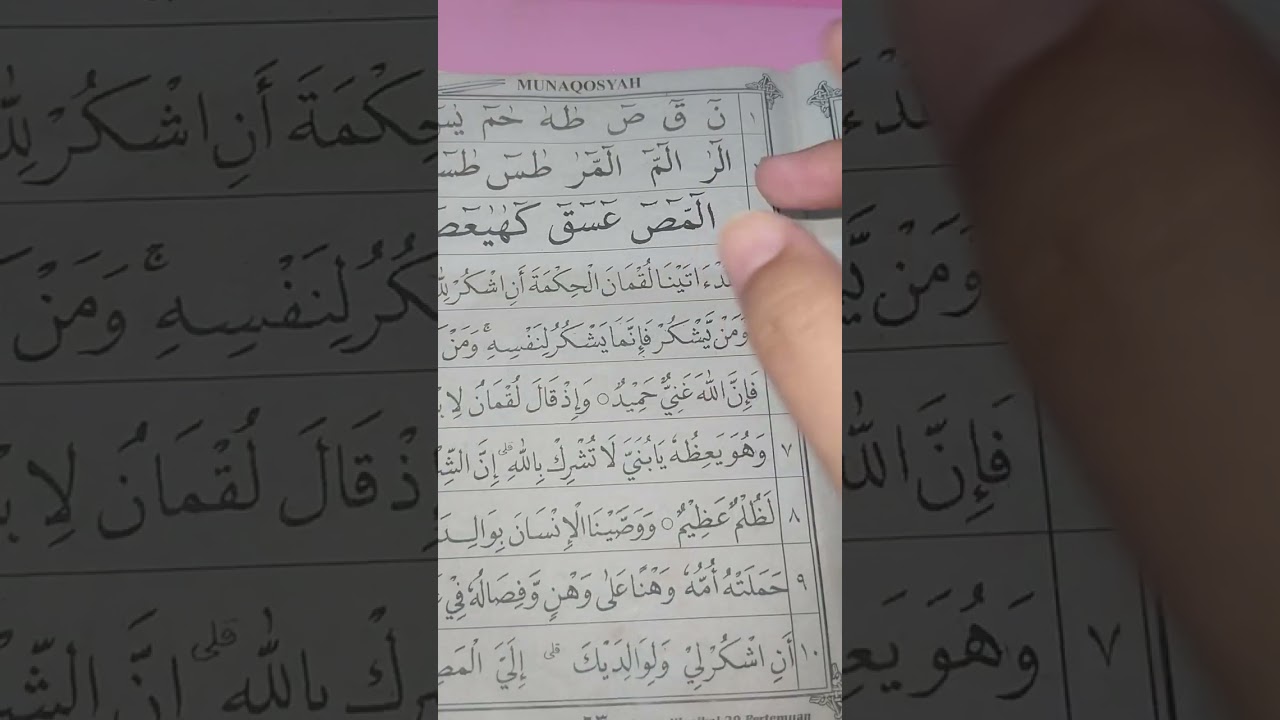 MUNAQOSYAH
١ نٓ قٓ صٓ طٰهٰ حٰمٓ
الٓرٰ الٓمّٓ الٓمّٓرٰ طٰسٓ
الٓمّٓصٓ عٓسٓقٓ كٓهٰيٰعٓصٓ
ءَاتَيْنَا لُقْمَانَ الْحِكْمَةَ أَنِ اشْكُرْ
وَمَنْ يَّشْكُرْ فَإِنَّمَا يَشْكُرُ لِنَفْسِهِ ۚ وَمَنْ
فَإِنَّ اللّٰهَ غَنِيٌّ حَمِيْدٌ ○ وَإِذْ قَالَ لُقْمَانُ
٧ وَهُوَ يَعِظُهٗ يَابُنَيَّ لَا تُشْرِكْ بِاللّٰهِ ۗ إِنَّ
٨ لَظُلْمٌ عَظِيْمٌ ○ وَوَصَّيْنَا الْإِنْسَانَ
٩ حَمَلَتْهُ أُمُّهٗ وَهْنًا عَلٰى وَهْنٍ وَّفِصَالُهٗ فِيْ
١٠ أَنِ اشْكُرْ لِيْ وَلِوَالِدَيْكَ ۗ إِلَيَّ
20 Pertemuan